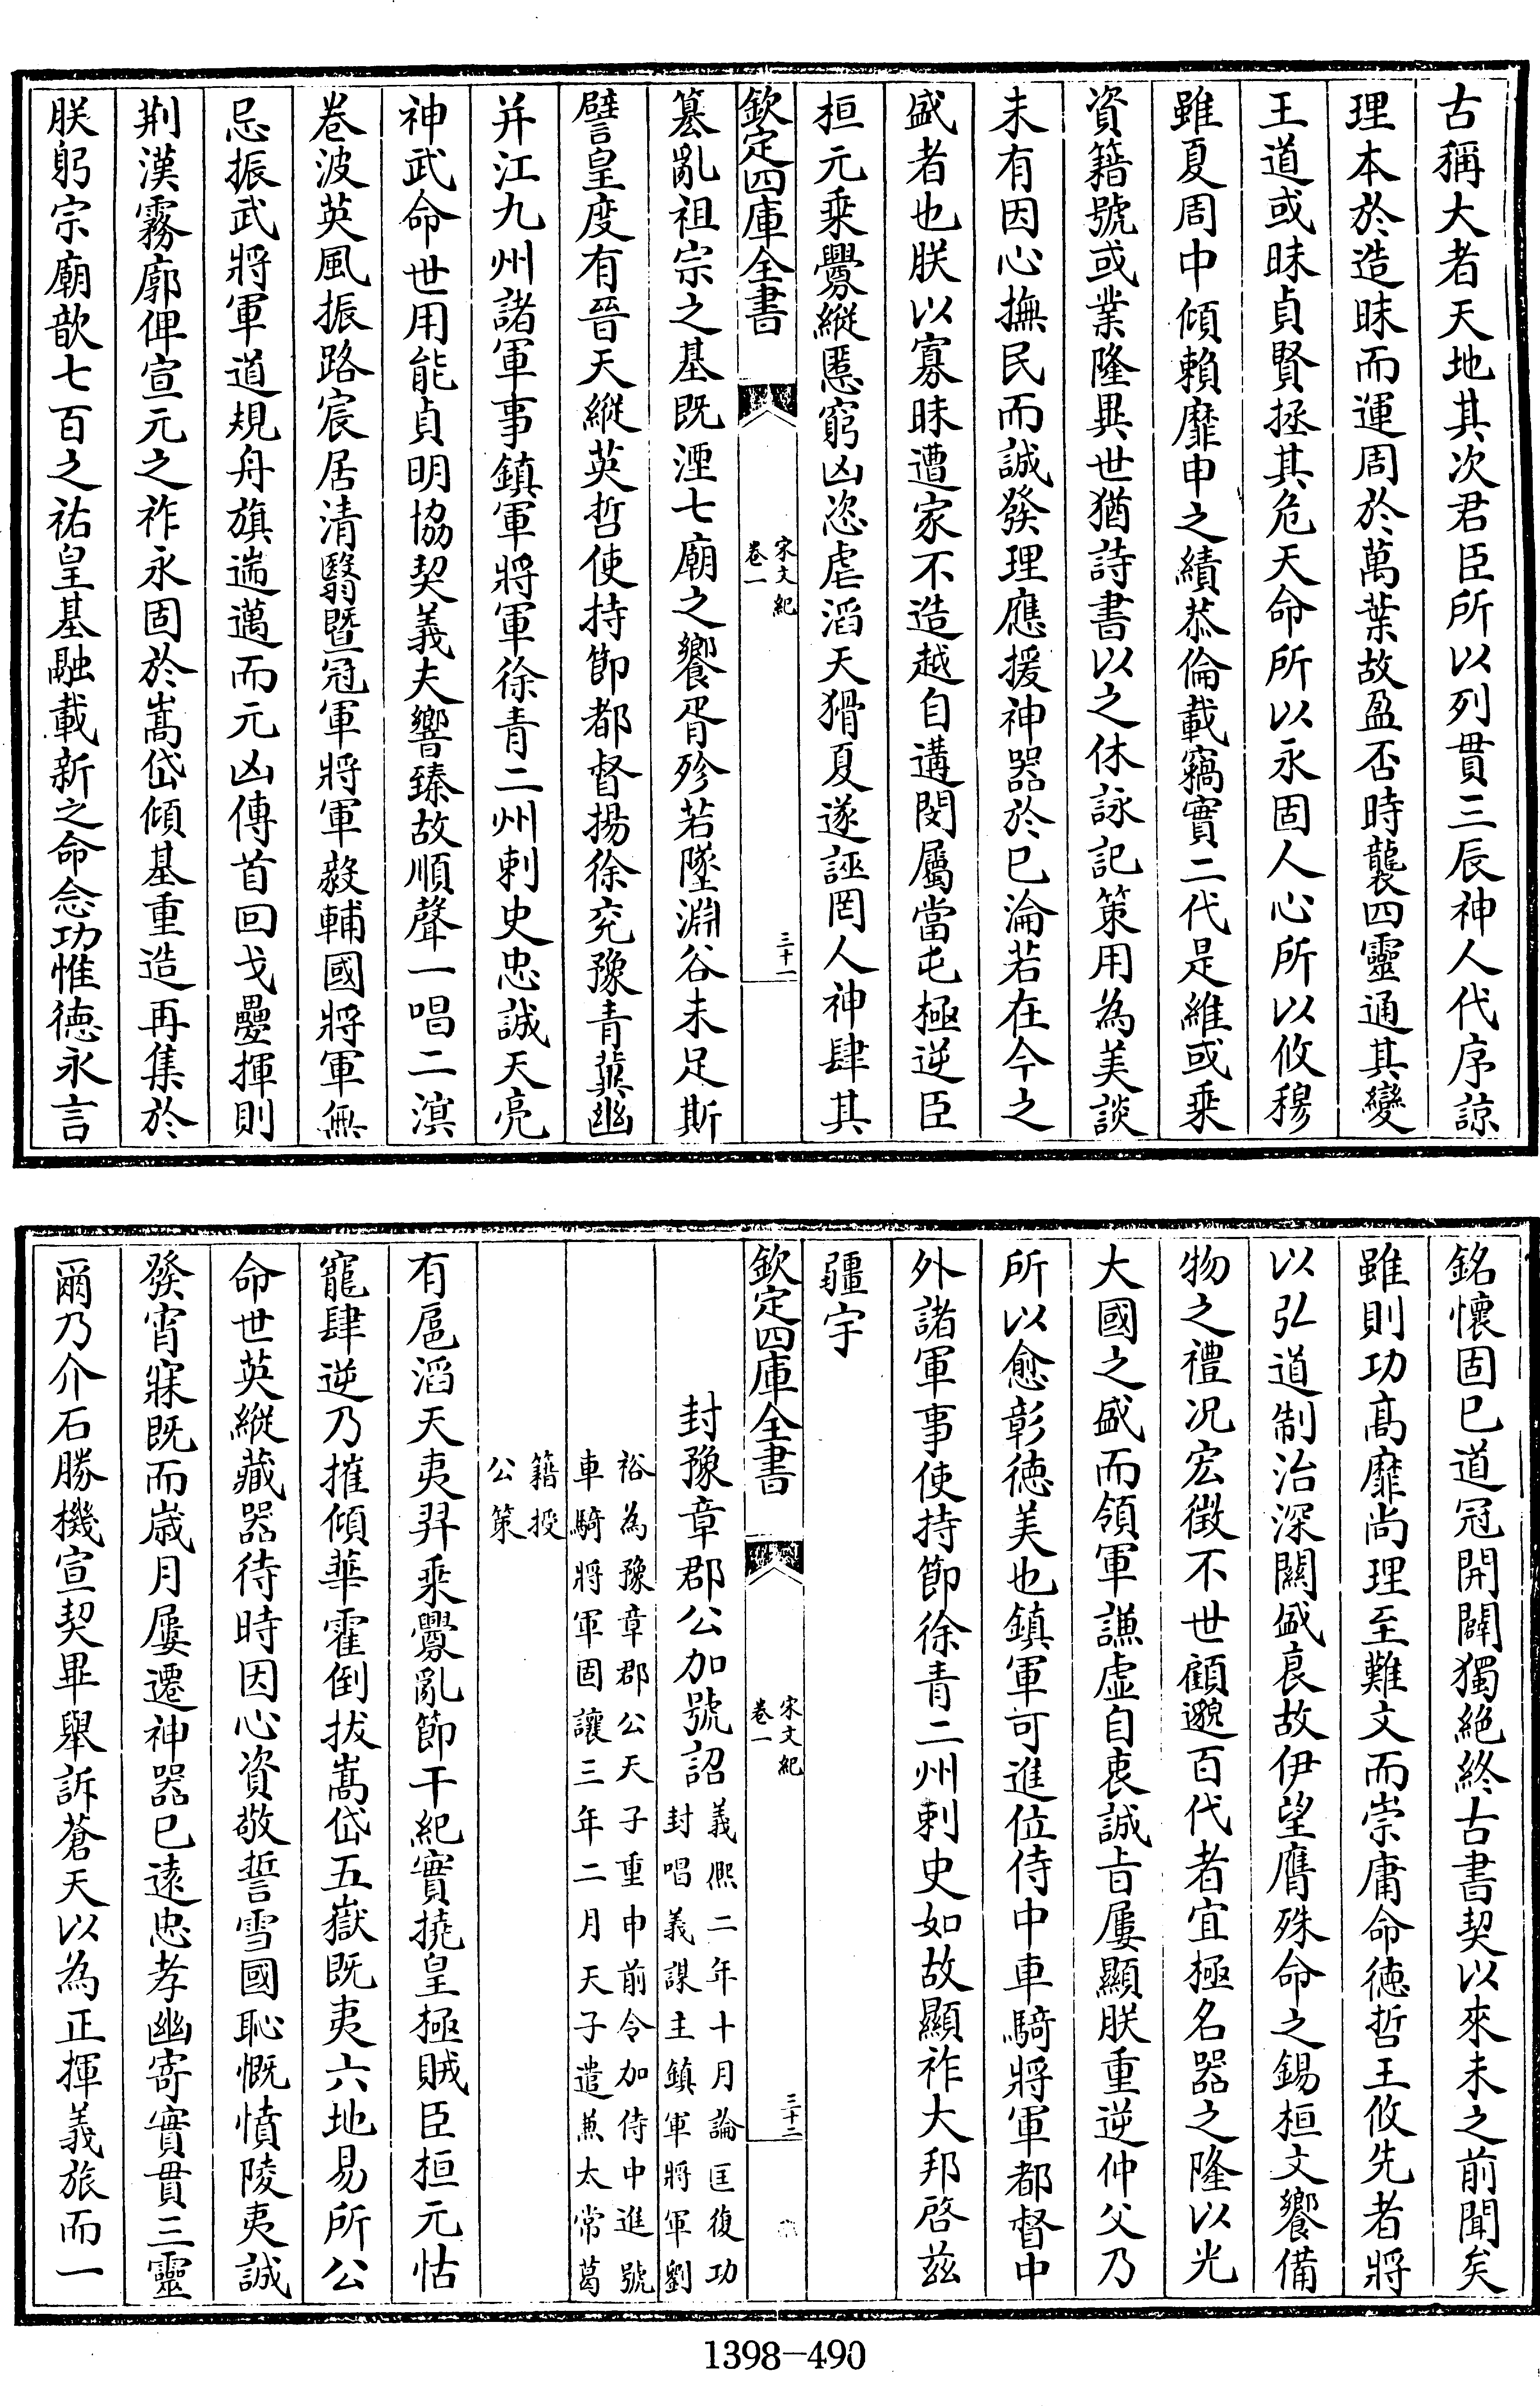 古稱大者天地其次君臣所以列貫三辰神人代序諒
理本於造昧而運周於萬葉故盈否時襲四靈通其變
王道或昧貞賢拯其危天命所以永固人心所以攸穆
雖夏周中傾賴靡申之績莽倫載竊實二代是維或乘
資籍號或業隆異世猶詩書以之休詠記策用為美談
未有因心撫民而誠發理應援神器於已淪若在今之
盛者也朕以寡昧遭家不造越自遘閔屬當屯極逆臣
桓元乘釁縱慝窮凶恣虐滔天猾夏遂誣罔人神肆其
欽定四庫全書
宋文紀
卷一
三十一
篡亂祖宗之基既湮七廟之饗胥殄若墜淵谷未足斯
譬皇度有晉天縱英哲使持節都督揚徐兖豫青冀幽
并江九州諸軍事鎮軍將軍徐青二州刺史忠誠天亮
神武命世用能貞明協契義夫響臻故順聲一唱二溟
卷波英風振路宸居清翳暨冠軍將軍毅輔國將軍無
忌振武將軍道規舟旗遄邁而元凶傳首回戈疊揮則
荆漢霧廓俾宣元之祚永固於嵩岱傾基重造再集於
朕躬宗廟歆七百之祜皇基融載新之命念功惟德永言
銘懷固已道冠開闢獨絶終古書契以來未之前聞矣
雖則功髙靡尚理至難文而崇庸命徳哲王攸先者將
以弘道制治深闗盛衰故伊望膺殊命之錫桓文饗備
物之禮況宏徴不世顧邈百代者宜極名器之隆以光
大國之盛而領軍謙虚自衷誠㫖屢顯朕重逆仲父乃
所以愈彰徳美也鎮軍可進位侍中車騎將軍都督中
外諸軍事使持節徐青二州刺史如故顯祚大邦啓兹
疆宇
欽定四庫全書
宋文紀
卷一
三十二
封豫章郡公加號詔
義熙二年十月論匡復功
封唱義謀主鎮軍將軍劉
裕為豫章郡公天子重申前令加侍中進號
車騎將軍固讓三年二月天子遣兼太常葛
籍授
公策
有扈滔天夷羿乘釁亂節干紀實撓皇極賊臣桓元怙
寵肆逆乃摧傾華霍倒拔嵩岱五嶽既夷六地易所公
命世英縱藏器待時因心資敬誓雪國恥慨憤陵夷誠
發宵寐既而歳月屢遷神器已遠忠孝幽寄實貫三靈
爾乃介石勝機宣契畢舉訴蒼天以為正揮義旅而一
1398-490